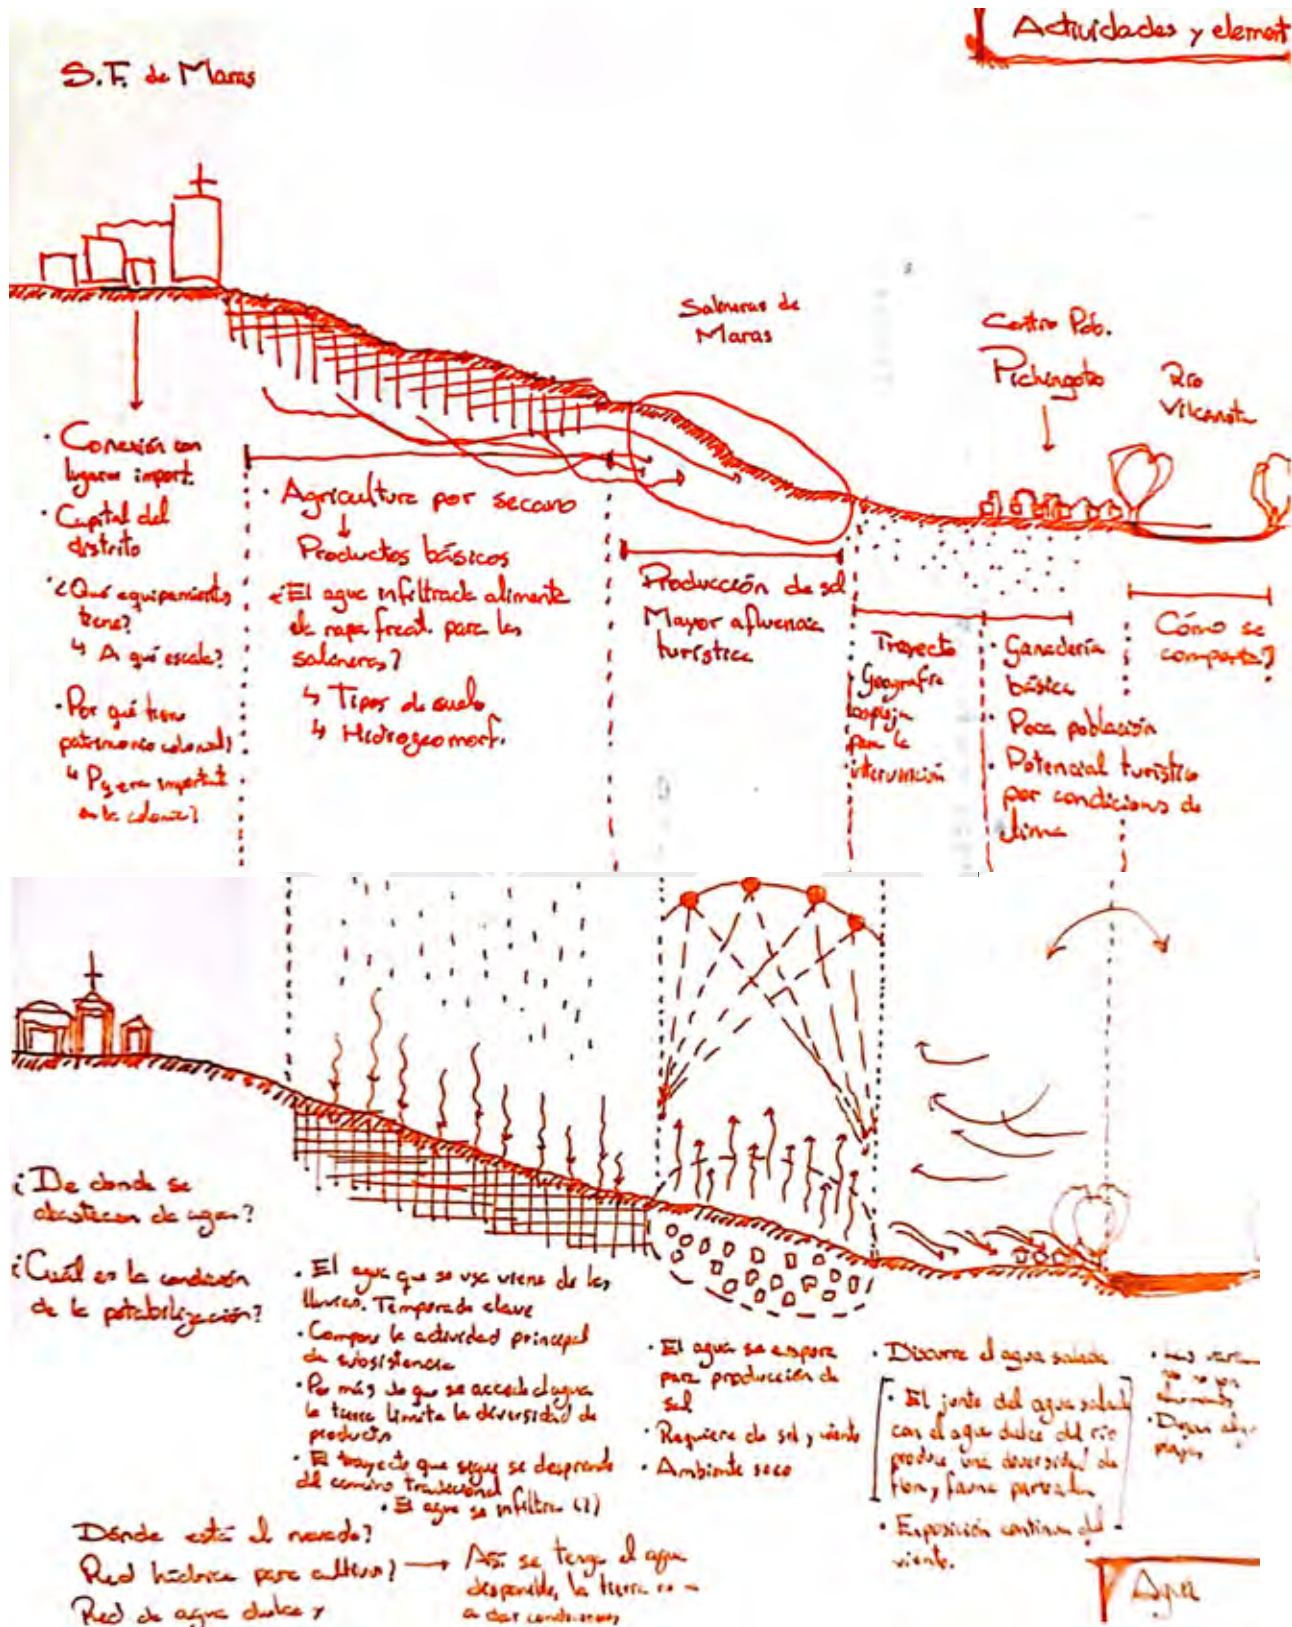 Actividades y element
S.F. de Maras
Salineras de
Maras
Centro Pob.
Pichingoto
Río
Vilcanota
· Conexión con
lugares import.
· Capital del
distrito
· ¿Qué equipamiento
tiene?
↳ A qué escala?
· Por qué tiene
patrimonio colonial?
↳ Pq era important
en la colonia?
· Agricultura por secano
↓
Productos básicos
¿El agua infiltrada alimenta
la napa freát. para las
salineras?
↳ Tipos de suelo
↳ Hidrogeomorf.
Producción de sal
Mayor afluencia
turística
Trayecto
· Geografía
compleja
para la
intervención
· Ganadería
básica
· Poca población
· Potencial turístico
por condiciones de
clima
Cómo se
comporta?
¿De donde se
abastecen de agua?
¿Cuál es la condición
de la potabilización?
· El agua que se usa viene de las
lluvias. Temporada clave
· Compone la actividad principal
de subsistencia
· Por más de que se acceda al agua
la tierra limita la diversidad de
productos
· El trayecto que sigue se desprende
del camino tradicional
· El agua se infiltra (?)
· El agua se evapora
para producción de
sal
· Requiere de sol y viento
· Ambiente seco
· Discurre el agua salada
· El junte del agua salada
con el agua dulce del río
produce una diversidad de
flora y fauna particular
· Exposición continua del
viento.
Dónde está el nevado?
Red hídrica para cultivos? → Así se tenga el agua
disponible, la tierra no
a dar condiciones
Red de agua dulce y
Agua